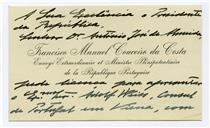 A Sua Excelência o Presidente
República,
Senhor Dr. António José de Almeida
Francisco Manuel Couceiro da Costa
Enviado Extraordinario e Ministro Plenipotenciario
de la República Portuguesa
pede para apresentar
o Adolf Weiss, Consul
de Portugal em Viena, com